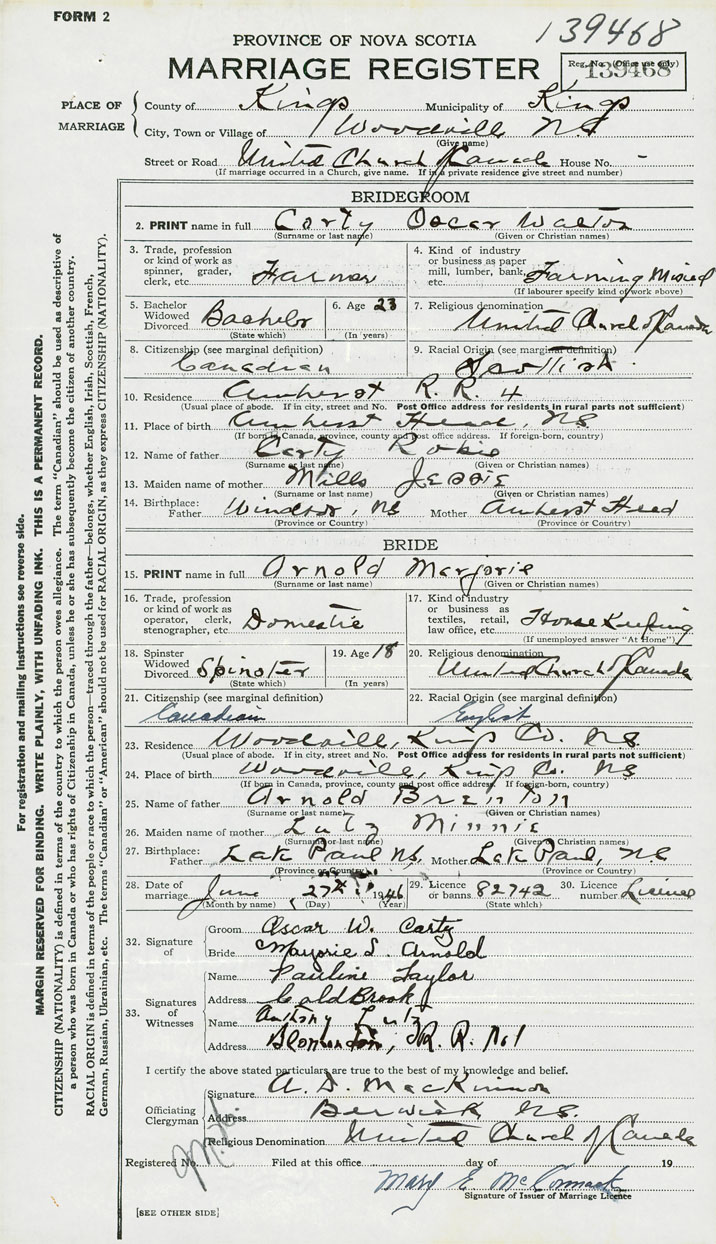 FORM 2
139468
PROVINCE OF NOVA SCOTIA
MARRIAGE REGISTER
Reg. No. (Office use only)
139468
PLACE OF MARRIAGE
County of Kings Municipality of Kings
City, Town or Village of Woodville N.S
(Give name)
Street or Road United Church of Canada House No. -
(If marriage occurred in a Church, give name. If in a private residence give street and number)
BRIDEGROOM
2. PRINT name in full Carty Oscar Walton
(Surname or last name) (Given or Christian names)
3. Trade, profession or kind of work as spinner, grader, clerk, etc. Farmer
4. Kind of industry or business as paper mill, lumber, bank, etc. Farming Mixed
(If labourer specify kind of work above)
5. Bachelor Widowed Divorced Bachelor
(State which)
6. Age 23
(In years)
7. Religious denomination
United Church of Canada
8. Citizenship (see marginal definition)
Canadian
9. Racial Origin (see marginal definition)
Scottish
10. Residence Amherst R. R. 4
(Usual place of abode. If in city, street and No. Post Office address for residents in rural parts not sufficient)
11. Place of birth Amherst Head, NS
(If born in Canada, province, county and post office address. If foreign-born, country)
12. Name of father Carty Robie
(Surname or last name) (Given or Christian names)
13. Maiden name of mother Mills Jessie
(Surname or last name) (Given or Christian names)
14. Birthplace: Father Windsor, NS Mother Amherst Head
(Province or Country) (Province or Country)
BRIDE
15. PRINT name in full Arnold Marjorie
(Surname or last name) (Given or Christian names)
16. Trade, profession or kind of work as operator, clerk, stenographer, etc. Domestic
17. Kind of industry or business as textiles, retail, law office, etc. House Keeping
(If unemployed answer "At Home")
18. Spinster Widowed Divorced Spinster
(State which)
19. Age 18
(In years)
20. Religious denomination
United Church of Canada
21. Citizenship (see marginal definition)
Canadian
22. Racial Origin (see marginal definition)
English
23. Residence Woodville, Kings Co. N.S.
(Usual place of abode. If in city, street and No. Post Office address for residents in rural parts not sufficient)
24. Place of birth Woodville, Kings Co. NS
(If born in Canada, province, county and post office address. If foreign-born, country)
25. Name of father Arnold Brenton
(Surname or last name) (Given or Christian names)
26. Maiden name of mother Lutz Minnie
(Surname or last name) (Given or Christian names)
27. Birthplace: Father Lake Paul NS, Mother Lake Paul, NS
(Province or Country) (Province or Country)
28. Date of marriage June 27th 1946
(Month by name) (Day) (Year)
29. Licence or banns 82742
(State which)
30. Licence number License
32. Signature of
Groom Oscar W. Carty
Bride Marjorie S. Arnold
33. Signatures of Witnesses
Name Pauline Taylor
Address ColdBrook
Name Anthony Lutz
Address R. R. No 1
I certify the above stated particulars are true to the best of my knowledge and belief.
Officiating Clergyman
Signature A. D. MacKinnon
Address Berwick N.S.
Religious Denomination United Church of Canada
Registered No. Filed at this office day of 19
Mary E. McCormack
Signature of Issuer of Marriage Licence
[SEE OTHER SIDE]
For registration and mailing instructions see reverse side.
MARGIN RESERVED FOR BINDING. WRITE PLAINLY, WITH UNFADING INK. THIS IS A PERMANENT RECORD.
CITIZENSHIP (NATIONALITY) is defined in terms of the country to which the person owes allegiance. The term "Canadian" should be used as descriptive of
a person who was born in Canada or who has rights of Citizenship in Canada, unless he or she has subsequently become the citizen of another country.
RACIAL ORIGIN is defined in terms of the people or race to which the person—traced through the father—belongs, whether English, Irish, Scottish, French,
German, Russian, Ukrainian, etc. The terms "Canadian" or "American" should not be used for RACIAL ORIGIN, as they express CITIZENSHIP (NATIONALITY).